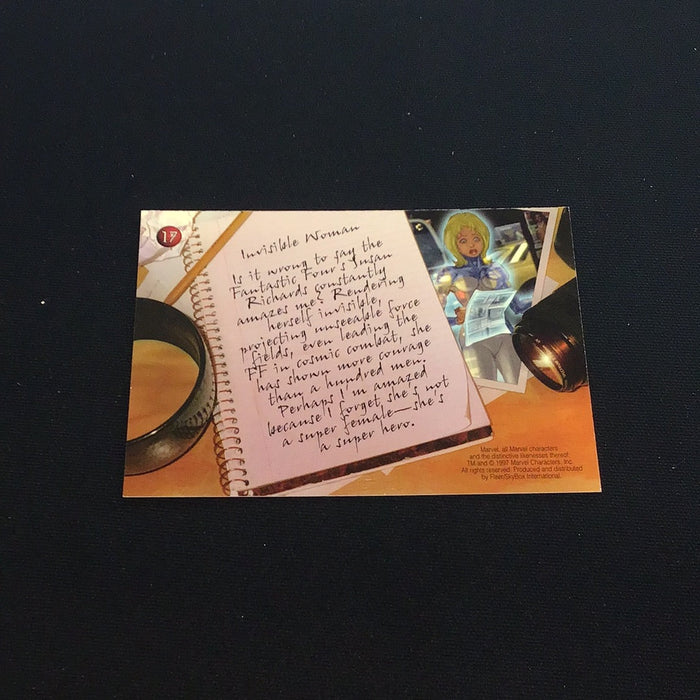 17
Invisible Woman
Is it wrong to say the
Fantastic Four's Susan
Richards constantly
amazes me? Rendering
herself invisible,
projecting unseeable force
fields, even leading the
FF in cosmic combat, she
has shown more courage
than a hundred men.
Perhaps I'm amazed
because I forget she's not
a super female—she's
a super hero.
Marvel, all Marvel characters
and the distinctive likenesses thereof:
TM and © 1997 Marvel Characters, Inc.
All rights reserved. Produced and distributed
by Fleer/SkyBox International.